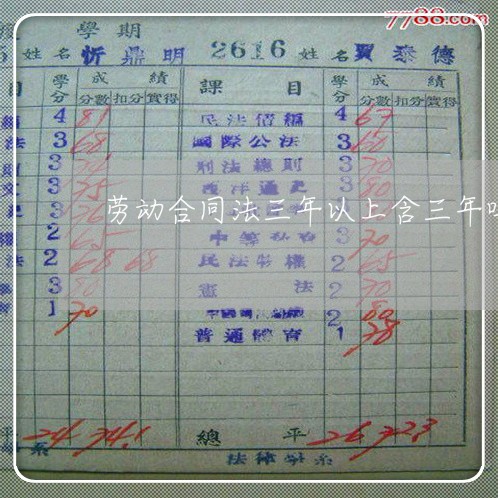 7788.com
度 學期
5 姓名 忻鼎明 2616 姓名 賈泰德
目 學分 成績 課目 學分 成績
分數 扣分 實得 分數 扣分 實得
編 4 81 民法債編 4 67
法 3 68 國際公法 3 60
則 3 刑法總則 3 70
3 75 西洋通史 3 80
劳动合同法三年以上含三年吗
史 3 76 3
權 2 65 3 70
法 2 68 68 民法物權 2 65
3 80 憲法 2 70
育 1 70 2 80
普通體育 1 78
平 24 74.1 總平 26 72.3
系 法律學系